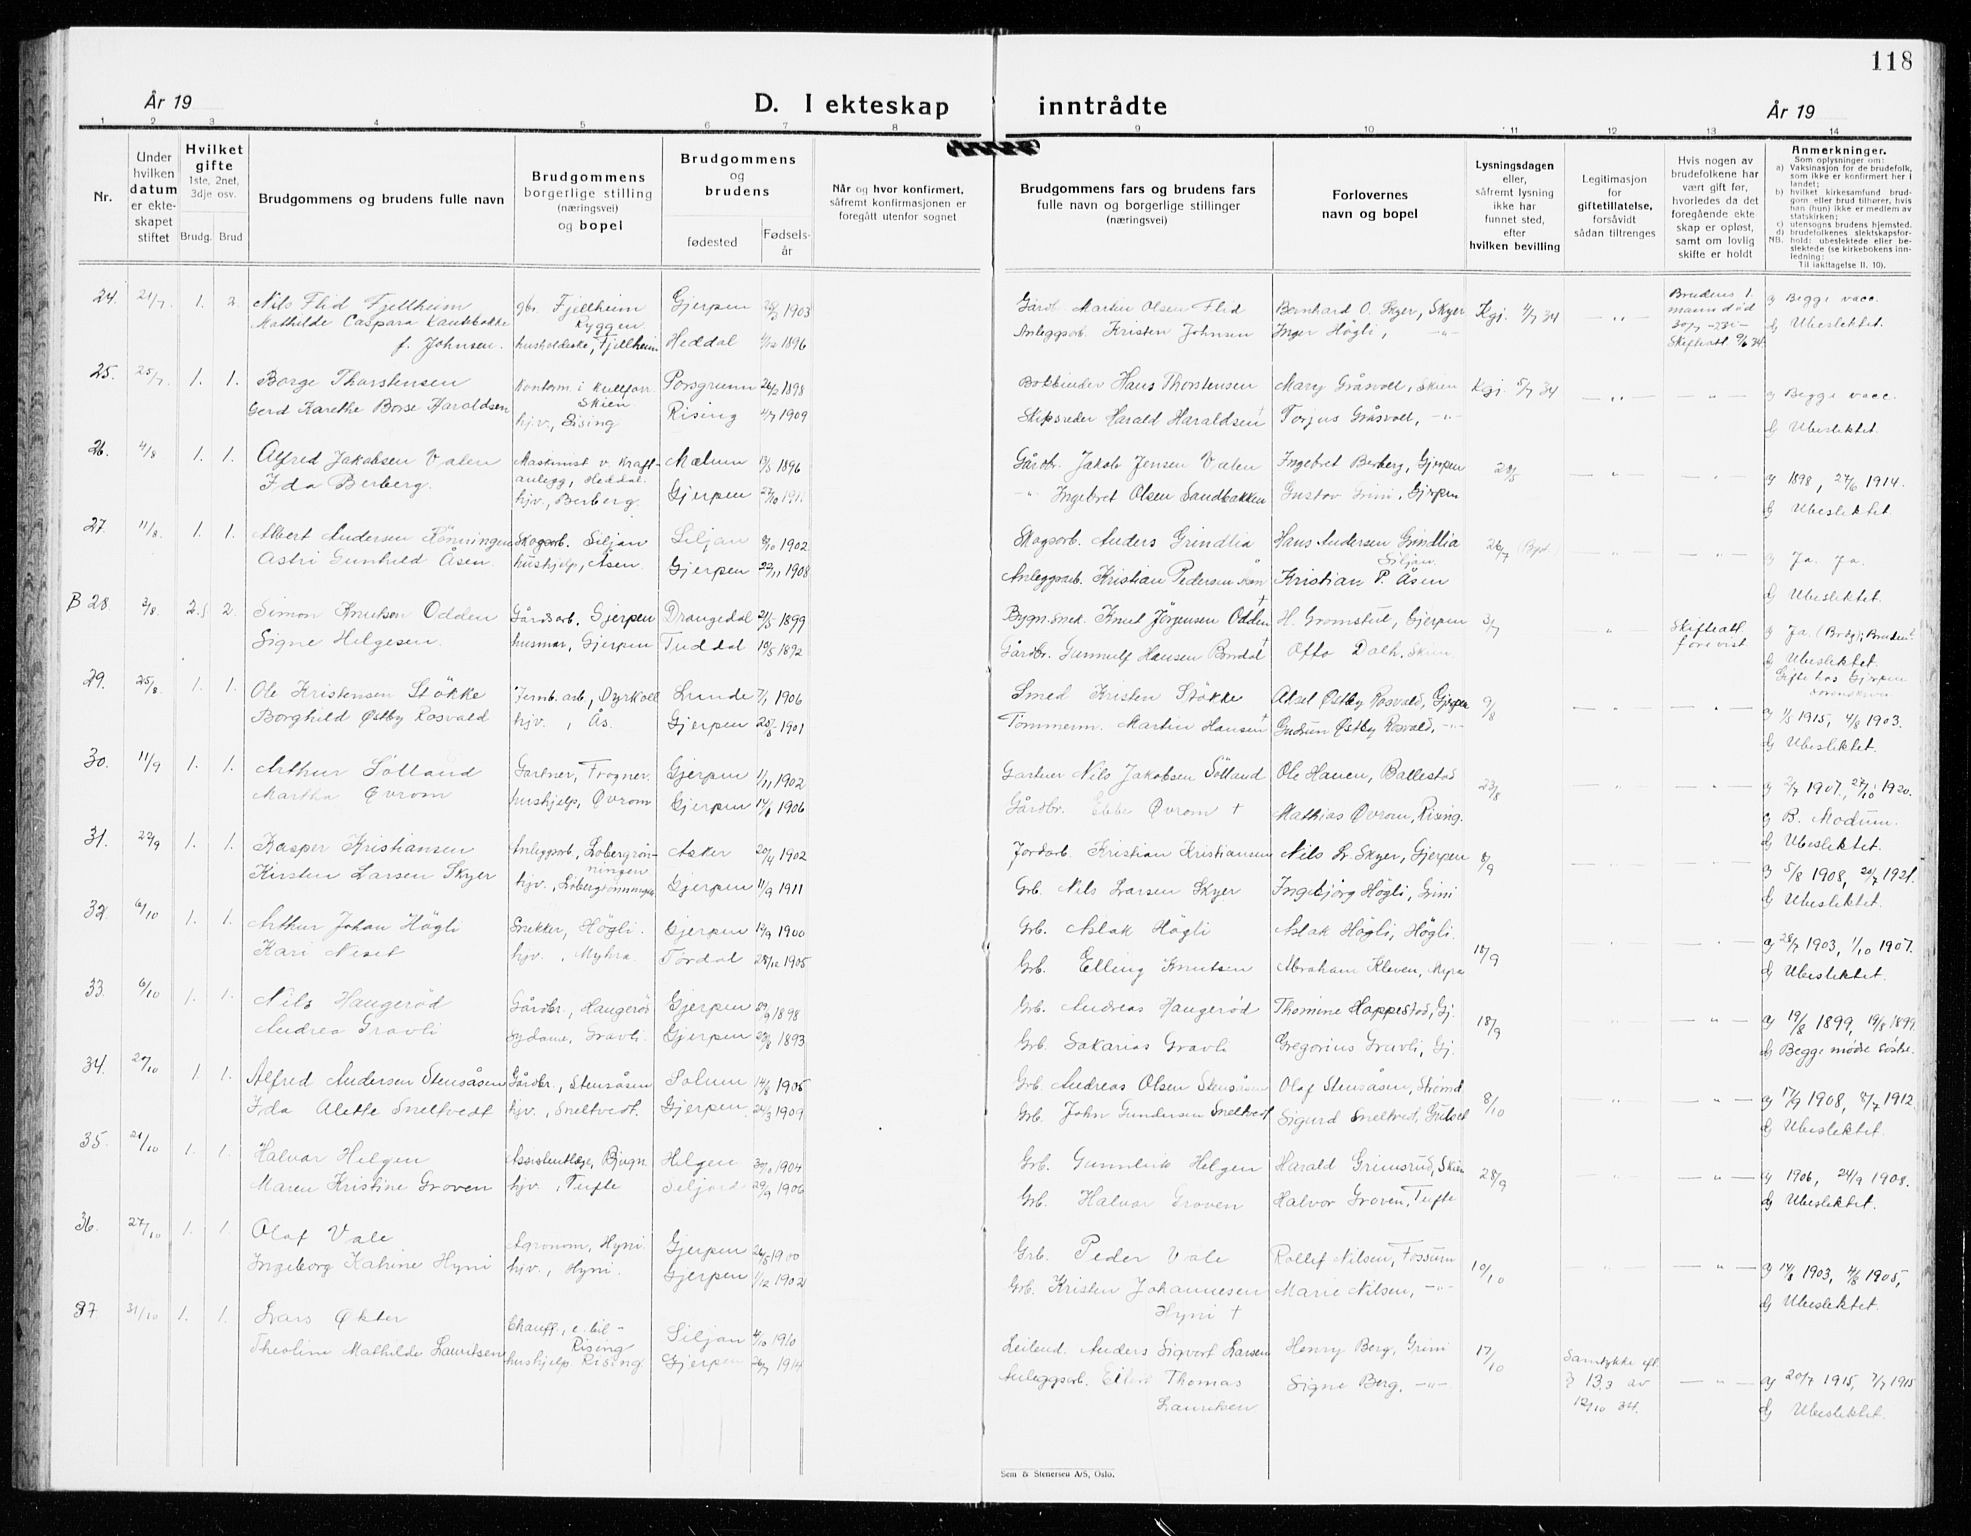 118
År 19
D. I ekteskap inntrådte
År 19
1 2 3 4 5 6 7 8 9 10 11 12 13 14
Nr.
Under hvilken datum er ekteskapet stiftet
Hvilket gifte
1ste, 2net, 3dje osv.
Brudg. Brud
Brudgommens og brudens fulle navn
Brudgommens borgerlige stilling (næringsvei) og bopel
Brudgommens og brudens
fødested
Fødselsår
Når og hvor konfirmert, såfremt konfirmasjonen er foregått utenfor sognet
Brudgommens fars og brudens fars fulle navn og borgerlige stillinger (næringsvei)
Forlovernes navn og bopel
Lysningsdagen eller, såfremt lysning ikke har funnet sted, efter hvilken bevilling
Legitimasjon for giftetillatelse, forsåvidt sådan tiltrenges
Hvis nogen av brudefolkene har vært gift før, hvorledes da det foregående ekteskap er opløst, samt om lovlig skifte er holdt
Anmerkninger.
Som oplysninger om:
a) Vaksinasjon for de brudefolk, som ikke er konfirmert her i landet;
b) hvilket kirkesamfund brudgom eller brud tilhører, hvis han (hun) ikke er medlem av statskirken;
c) utensogns brudens hjemsted.
d) brudefolkenes slektskapsforhold: ubeslektede eller beslektede (se kirkebokens innledning:
NB. Til iakttagelse II. 10).
24. 21/7. 1. 2. Nils Flid Fjellheim gbr. Fjellheim Gjerpen 1903 Gårdb. Martin Olsen Flid Bernhard O. Skyer, Skyer Kgj. 4/7 34 — " — Brudens 1. mann død a) Begge vacc.
Mathilde Caspara Kaukbakke Ryggen Anleggsarb. Kristen Johnsen Inger Högli, — " — d) Ubeslektet.
f. Johnsen. husholderske, Fjellheim Heddal 1896 Skifteatt. 9/6 34
25. 25/7. 1. 1. Borge Thorstensen Kontorm. i kullforr. Skien Porsgrunn 26/2 1898 Bokbinder Hans Thorstensen Mary Gråsvoll, Skien Kgj. 5/7 34 — " — — " — a) Begge vacc.
Gerd Karethe Borse Haraldsen hjv., Rising Rising 4/7 1909 Skipsreder Harald Haraldsen † Torjus Gråsvoll, — " — d) Ubeslektet.
26. 4/8 1. 1. Alfred Jakobsen Valen Maskinist v. kraftanlegg, Heddal. Mælum 1896 Gårdbr. Jakob Jensen Valen Ingebret Berberg, Gjerpen 28/5 — " — — " — a) 1898, 27/6 1914.
Ida Berberg. hjv., Berberg. Gjerpen 27/10 191 — " — Ingebret Olsen Sandbakken Gustav Grini, Gjerpen d) Ubeslektet.
27. 11/8. 1. 1. Albert Andersen Rönningen Skogsarb. Siljan Siljan 1902 Skogsarb. Anders Grindlia Hans Andersen Grindlia Siljan 26/7 — " — — " — a) Ja. Ja.
Astri Gunhild Åsen. hushjelp, Åsen. Gjerpen 22/11 1908 Anleggsarb. Kristian Pedersen Kristian P. Åsen d) Ubeslektet.
B 28. 3/8. 2. 2. Simon Knutsen Odden Gårdsarb. Gjerpen Drangedal 21/5 1899 Bygn.sned. Knut Jörgensen Odden † H. Gromstul, Gjerpen 3/7 — " — Skifteatt. forevist a) Ja. (Brdg);
Signe Helgesen. husmor, Gjerpen Tuddal 19/5 1892 Gårdbr. Gunnulf Hansen Bordal † Otto Dalh, Skien d) Ubeslektet.
Gifte hos Gjerpen
29. 25/8. 1. 1. Ole Kristensen Stökke Jernb. arb., Dyrkoll Lunde 7/1 1906 Smed Kristen Stökke Aksel Østby Rosvald, Gjerpen 9/8 — " — — " — a) 1/8 1915, 4/8 1903.
Borghild Østby Rosvald hjv., Ås. Gjerpen 1901 Tömmerm. Martin Hansen † Gudrun Østby Rosvald, — " — d) Ubeslektet.
30. 11/9 1. 1. Arthur Sölland Gartner, Frogner. Gjerpen 1/11 1902 Gartner Nils Jakobsen Sölland Ole Hauen, Ballestad 23/8 — " — — " — a) 2/7 1907, 27/10 1920.
Martha Øvrom hushjelp, Øvrom Gjerpen 1906 Gårdbr. Ebbe Øvrom † Mathias Øvrom, Rising. B. Modum.
d) Ubeslektet.
31. 22/9 1. 1. Kasper Kristiansen Anleggsarb., Löbergrönningen Asker 20/4 1902 Jordarb. Kristian Kristiansen Nils Lr. Skyer, Gjerpen 8/9 — " — — " — a) 5/8 1908, 20/7 1921.
Kirsten Larsen Skyer hjv., Löbergrönningen Gjerpen 11/9 1911 Grb. Nils Larsen Skyer Ingebjörg Högli, Grini d) Ubeslektet.
32. 6/10 1. 1. Arthur Johan Högli Snekker, Högli. Gjerpen 19/9 1900 Grb. Aslak Högli Aslak Högli, Högli. 18/9 — " — — " — a) 28/7 1903, 1/10 1907.
Kari Neset hjv., Myhra. Tördal 28/12 1905 Grb. Elling Knutsen Abraham Kleven, Myra d) Ubeslektet.
33. 6/10 1. 1. Nils Haugeröd Gårdbr., Haugeröd Gjerpen 1898 Grb. Andreas Haugeröd Thomine Hoppestad, Gj. 18/9 — " — — " — a) 19/8 1899, 19/8 1899.
Andrea Gravli Sydame, Gravli. Gjerpen 23/8 1893 Grb. Sakarias Gravli Gregorius Gravli, Gj. d) Begge mödre söstre.
34. 20/10 1. 1. Alfred Andersen Stensåsen Gårdbr., Stensåsen Solum 14/8 1905 Grb. Andreas Olsen Stensåsen Olaf Stensåsen, Strömd 8/10 — " — — " — a) 17/9 1908, 8/7 1912.
Ida Alette Sneltvedt hjv., Sneltvedt. Gjerpen. 24/3 1909 Grb. John Gundersen Sneltvedt Sigurd Sneltvedt, Gulset d) Ubeslektet.
35. 21/10 1. 1. Halvar Helgen Assistentlæge, Bjugn Helgen 30/10 1904 Grb. Gunnleik Helgen Harald Grimsrud, Skien 28/9 — " — — " — a) 1906, 24/9 1908.
Maren Kristine Groven hjv., Tufte Seljord 29/9 1906 Grb. Halvar Groven Halvor Groven, Tufte d) Ubeslektet.
36. 27/10 1. 1. Olaf Vale Agronom, Hyni. Gjerpen 26/8 1900 Grb. Peder Vale Rollef Nilsen, Fossum 10/10 — " — — " — a) 14/8 1903, 4/8 1905,
Ingeborg Katrine Hyni hjv., Hyni. Gjerpen 1/12 1902 Grb. Kristen Johannesen Hyni † Marie Nilsen, — " — d) Ubeslektet.
37 31/10 1. 1. Lars Økter Chauff., e. bil - Rising Siljan 4/10 1910 Leilend. Anders Sigvart Larsen Henry Berg, Grini 17/10 Samtykke eft. § 13,3 av 12/10 34. — " — a) 20/7 1915, 7/7 1915
Theoline Mathilde Lauritsen hushjelp Rising Gjerpen 26/7 1914 Anleggsarb. Eilert Thomas Lauritsen Signe Berg, — " — d) Ubeslektet.
Sem & Stenersen A/S, Oslo.